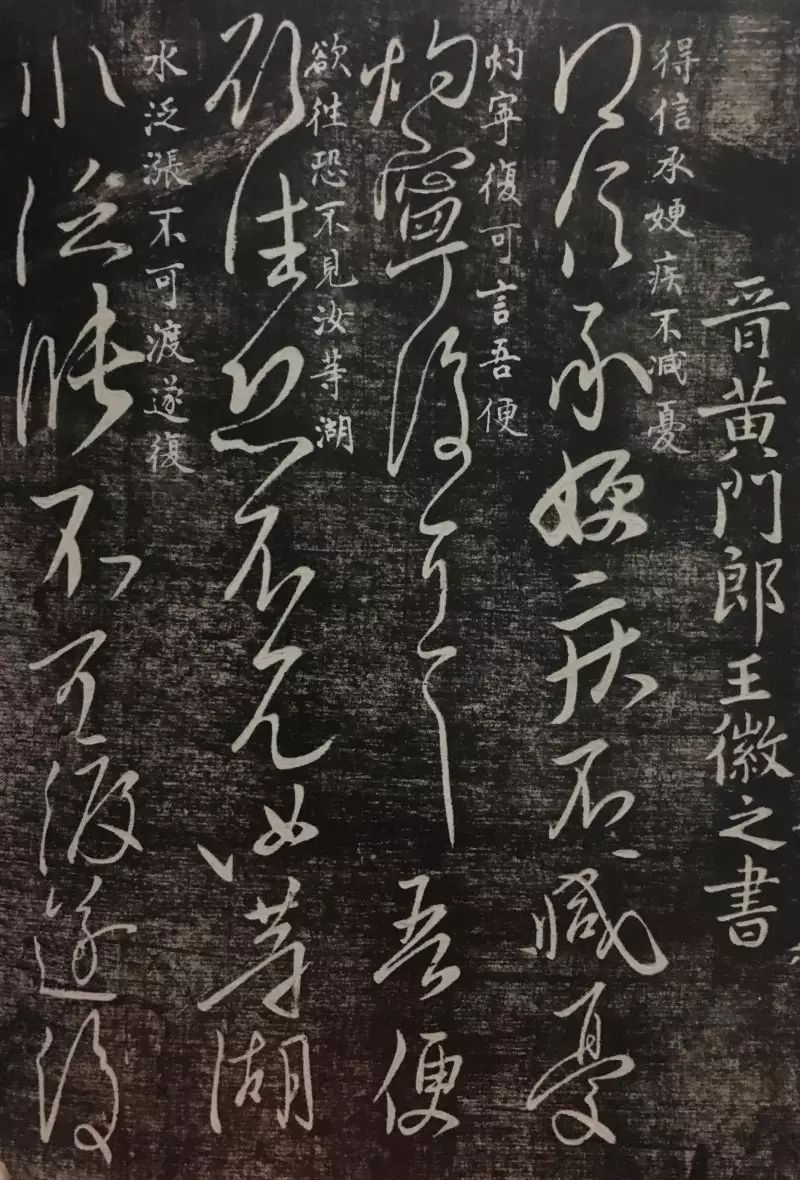 晉黃門郎王徽之書
得信承㛐疾不減憂
得信承㛐疾不減憂
灼寧復可言吾便
灼寧復可言吾便
欲往恐不見汝等湖
欲往恐不見汝等湖
水泛漲不可渡遂復
水泛漲不可渡遂復